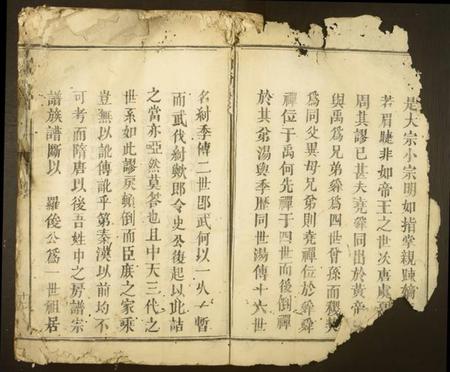 是大宗小宗明如指掌親疎嫡
若眉睫非如帝王之世次唐虞
周其謬已甚夫堯舜同出於黃帝
與禹為兄弟舜為四世曾孫而稷契
為同父異母兄弟則堯禪位於舜舜
禪位于禹何先禪于四世而後倒禪
於其翁湯與季歷同世湯傳十六世
名紂季傳二世即武何以一人暫
而武伐紂歟即令史公復起以此詰
之當亦啞然莫答也且中天三代之
世系如此謬戾顛倒而臣庶之家乘
豈無以訛傳訛乎第秦漢以前均不
可考而隋唐以後吾姓中之房譜宗
譜族譜斷以 羅俊公為一世祖居